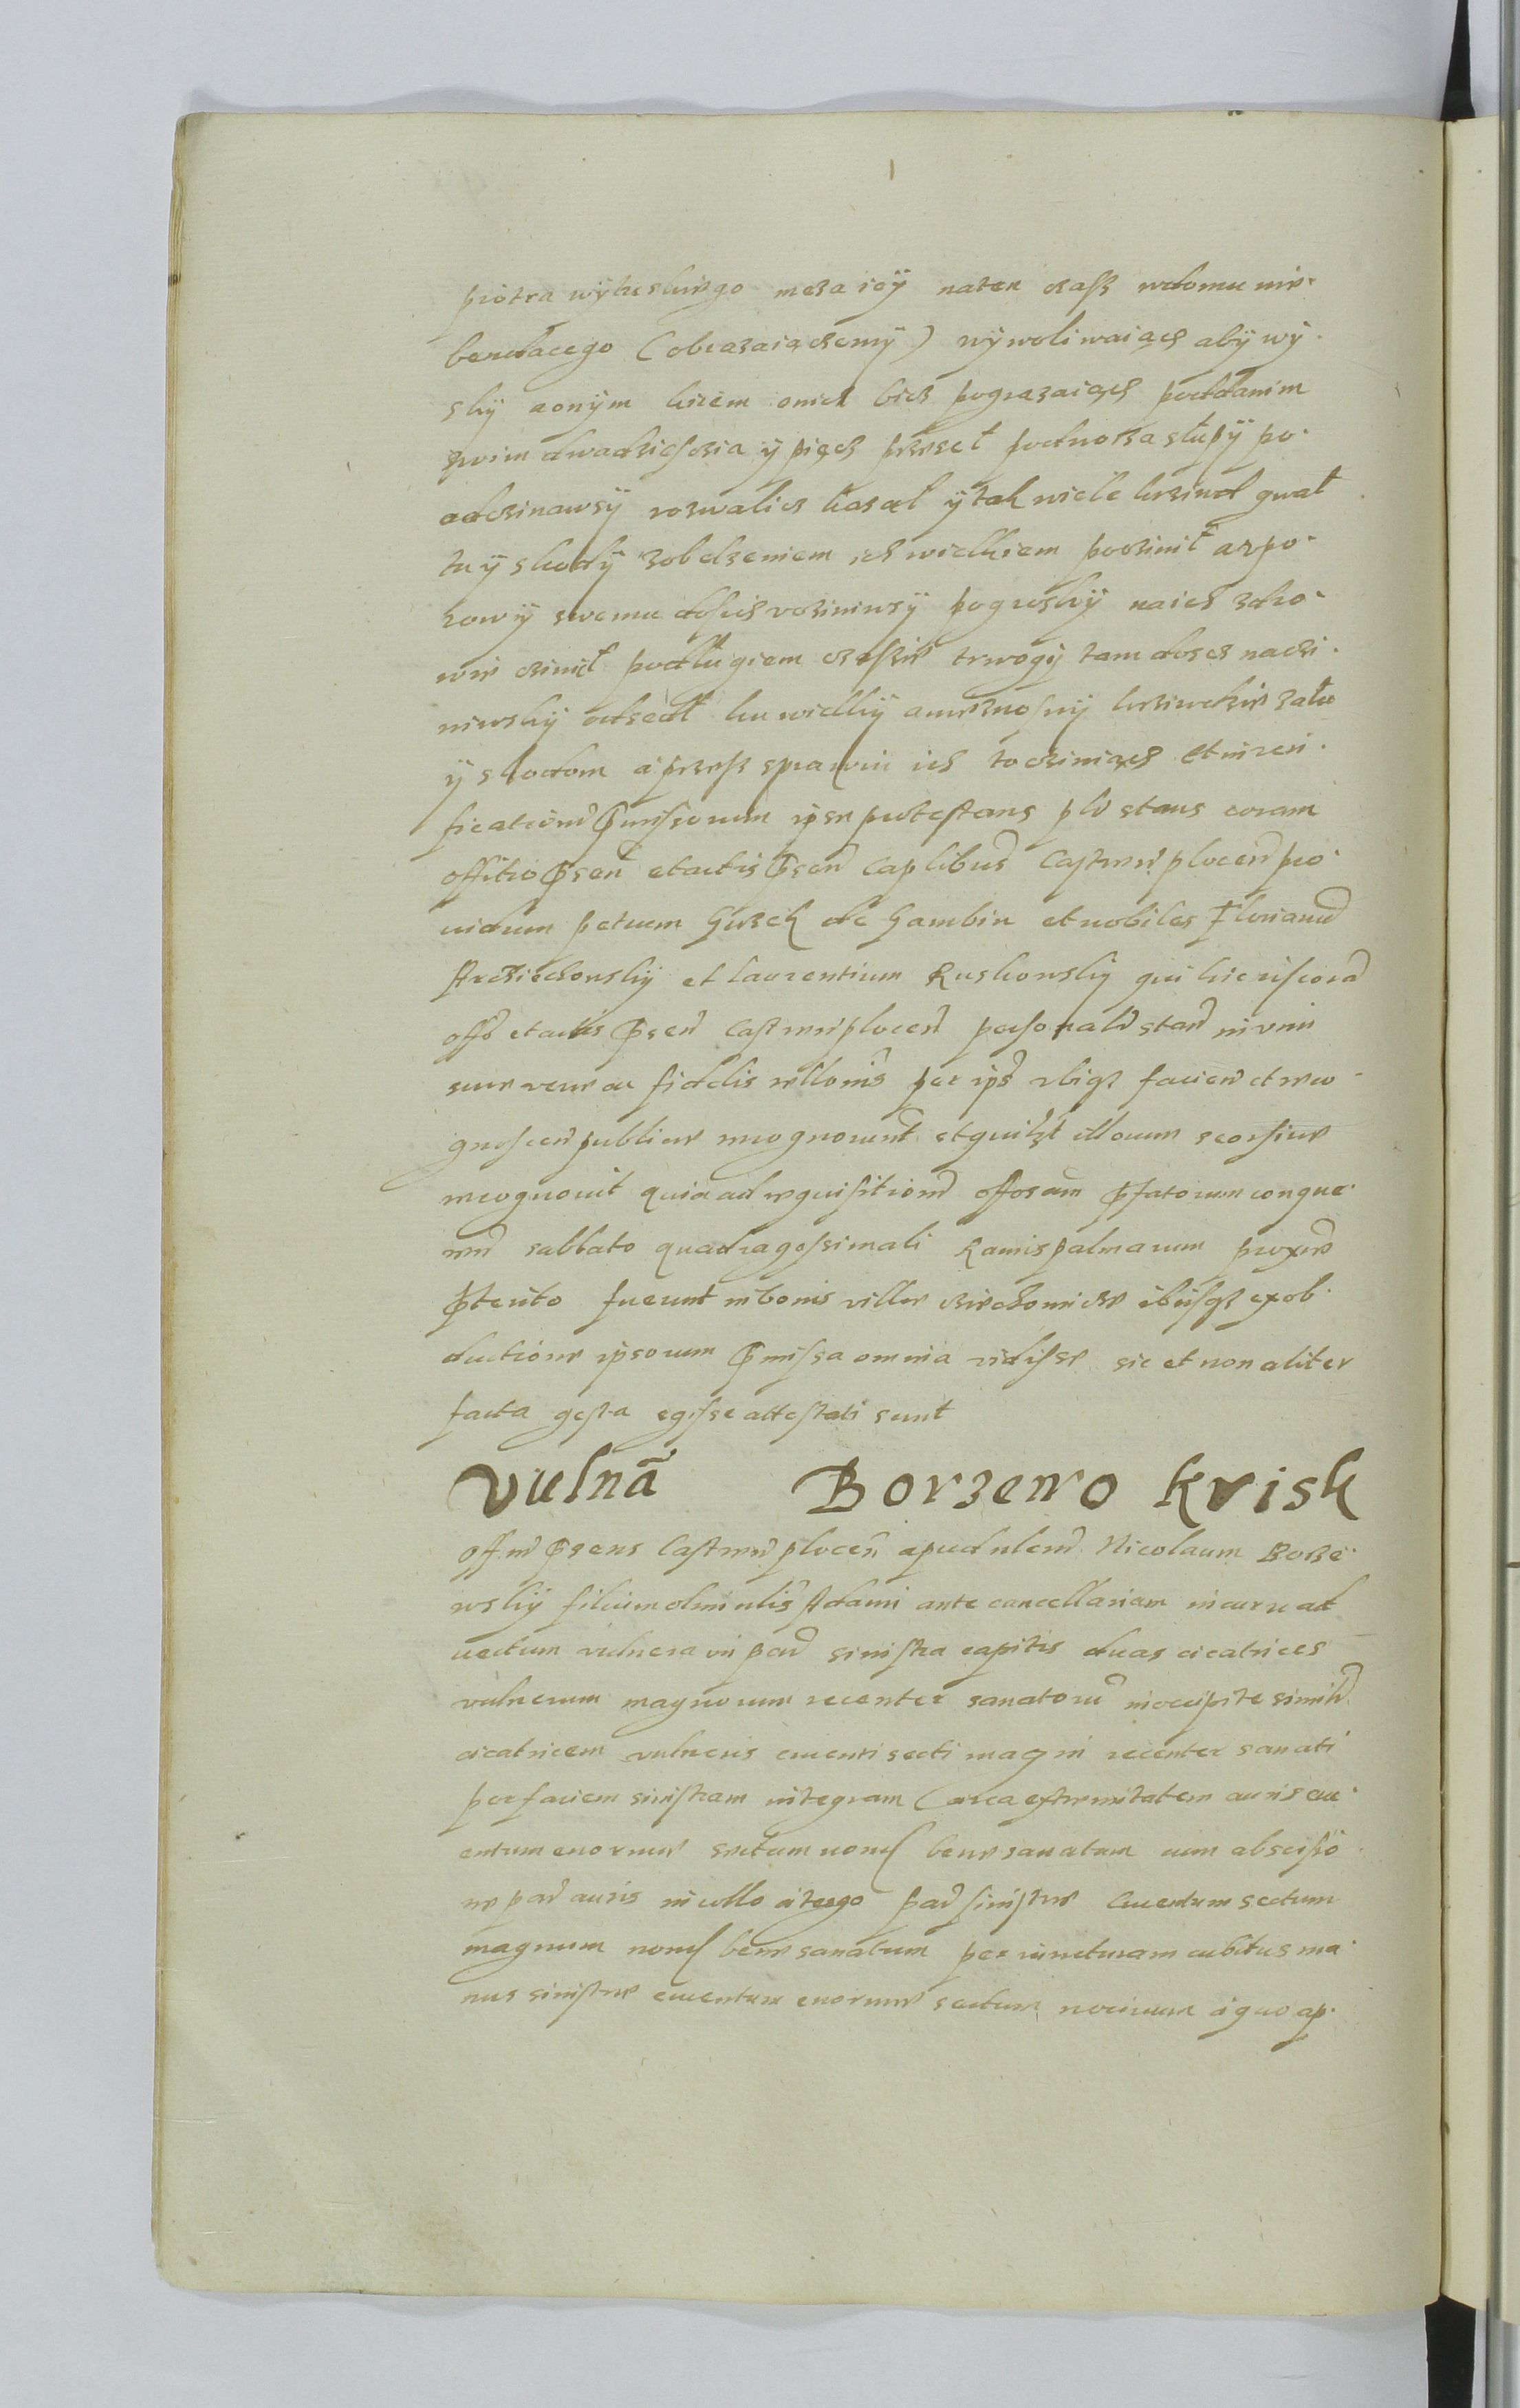 piotra wÿkuskiego meza ieÿ naten czasz wdomu nie
bendacego (obrazaiączemÿ) wÿwoliwaiącz abÿ wÿ
slÿ aonÿm kiiem onich bicz pograzaiącz poddanim
swim dwadziescia ÿ piącz przset podnorza słupÿ po
odczinawsÿ rozwalicz kazal ÿ tak wiele krziwd gwał
tu ÿ skodÿ zobelzeniem ich wielkiem poczinił azpo
rowÿ swemu dosicz vczininsÿ pogroskÿ naich zdro
wie czinił podługiem czaszie trwogÿ tam doscz naczi
niwskÿ odsedł ku wielkÿ anieznosnÿ krziwdzie zalu
ÿ skodom aprzesz sprawiu ich tocziniącz Et in veri
ficationem pmissorum ipse protestans plr stans coram
offitio psen et actis psen Caplibus Castren plocen pro
uidum petrum Gurzek de Gambin et nobiles Florianum
Arcziechowskÿ et laurentium Ruskowskÿ qui hic itis corã
offo et actis psen Castren plocen personalr stan
fidelis rellonis per ips vbiqz facien et reco
gnoscen publice recognouerunt et quilzt illorum seorsiue
recognouit quia ad requisitionem offosam pfatorum conque
ren sabbato quadragessimali Ramispalmarum proxime
pterito fuerunt in bonis ville cziechomicze ibiisqz exob
ductione ipsorum pmissa omnia vidisse sic et non aliter
facta gesta egisse attestati sunt
Vulnã Borzewo Krisk
offm psens Castren plocen apud nlem Nicolaum Borze
wskÿ filium olim nlis Adami ante cancellariam in curru ad
uectum vulnera in par sinistra capitis duas cicatrices
vulnerum magnorum recenter sanatorum in occipite similr
cicatricem vulneris cruenti secti magni recenter sanati
per faciem sinistram integram circa extremitatem auris cru
entum enorme sectum nond bene sanatum cum abscisio
ne par auris in collo a tergo par sinistre Cruentum sectum
magnum nond bene sanatum per iuncturam cubitus ma
nus sinistre cruentum enorme sectum nociuum a quo ap